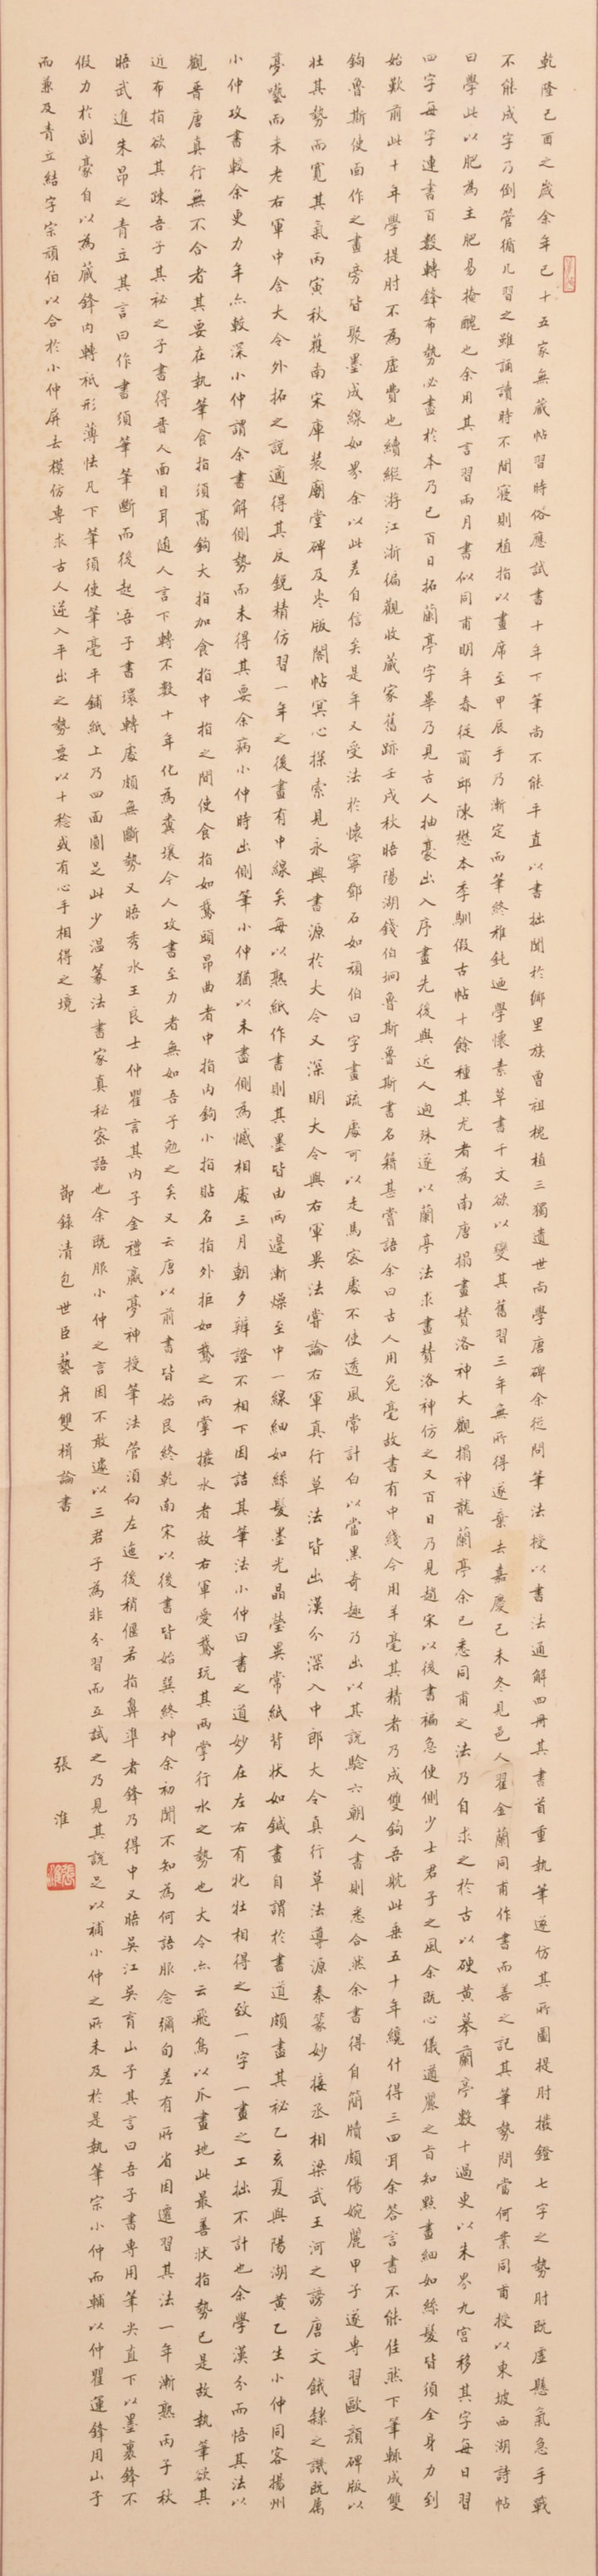 乾隆己酉之歲余年已十五家無藏帖習時俗應試書十年下筆尚不能平直以書拙聞於鄉里族曾祖槐植三獨遺世尚學唐碑余從問筆法授以書法通解四冊其書首重執筆遂仿其所圖提肘撥鐙七字之勢肘既虛懸氣急手戰
不能成字乃倒管循几習之雖誦讀時不間寢則植指以畫席至甲辰手乃漸定而筆終稚鈍迺學懷素草書千文欲以變其舊習三年無所得遂棄去嘉慶己未冬見邑人翟金蘭同甫作書而善之記其筆勢問當何業同甫授以東坡西湖詩帖
曰學此以肥為主肥易掩醜也余用其言習兩月書似同甫明年春從商邱陳懋本季馴假古帖十餘種其尤者為南唐搨畫贊洛神大觀搨神龍蘭亭余已悉同甫之法乃自求之於古以硬黃摹蘭亭數十過更以朱界九宮移其字每日習
四字每字連書百數轉鋒布勢必盡於本乃已百日拓蘭亭字畢乃見古人抽豪出入序畫先後與近人迥殊遂以蘭亭法求畫贊洛神仿之又百日乃見趙宋以後書褊急便側少士君子之風余既心儀遒麗之旨知點畫細如絲髮皆須全身力到
始歎前此十年學提肘不為虛費也續縱游江浙徧觀收藏家舊跡壬戌秋晤陽湖錢伯坰魯斯魯斯書名籍甚嘗語余曰古人用兔毫故書有中綫今用羊毫其精者乃成雙鉤吾耽此垂五十年纔什得三四耳余答言書不能佳然下筆輒成雙
鉤魯斯使面作之畫旁皆聚墨成線如界余以此差自信矣是年又受法於懷寧鄧石如頑伯曰字畫疏處可以走馬密處不使透風常計白以當黑奇趣乃出以其說驗六朝人書則悉合然余書得自簡牘頗傷婉麗甲子遂專習歐顏碑版以
壯其勢而寬其氣丙寅秋獲南宋庫裝廟堂碑及棗版閣帖冥心探索見永興書源於大令又深明大令與右軍異法嘗論右軍真行草法皆出漢分深入中郎大令真行草法導源秦篆妙接丞相梁武王河之謗唐文餓隸之譏既屬
夢囈而未老右軍中含大令外拓之說適得其反銳精仿習一年之後畫有中線矣每以熟紙作書則其墨皆由兩邊漸燥至中一線細如絲髮墨光晶瑩異常紙背狀如鍼畫自謂於書道頗盡其祕乙亥夏與陽湖黃乙生小仲同客揚州
小仲攻書較余更力年亦較深小仲謂余書解側勢而未得其要余病小仲時出側筆小仲猶以未盡側為憾相處三月朝夕辨證不相下因詰其筆法小仲曰書之道妙在左右有牝牡相得之致一字一畫之工拙不計也余學漢分而悟其法以
觀晉唐真行無不合者其要在執筆食指須高鉤大指加食指中指之間使食指如鵞頭昂曲者中指內鉤小指貼名指外拒如鵞之兩掌撥水者故右軍愛鵞玩其兩掌行水之勢也大令亦云飛鳥以爪畫地此最善狀指勢已是故執筆欲其
近布指欲其疎吾子其祕之子書得晉人面目耳隨人言下轉不數十年化為糞壤今人攻書至力者無如吾子勉之矣又云唐以前書皆始艮終乾南宋以後書皆始巽終坤余初聞不知為何語服念彌旬差有所省因遷習其法一年漸熟丙子秋
晤武進朱昂之青立其言曰作書須筆筆斷而後起吾子書環轉處頗無斷勢又晤秀水王良士仲瞿言其內子金禮嬴夢神授筆法管須向左迤後稍偃若指鼻準者鋒乃得中又晤吳江吳育山子其言曰吾子書專用筆尖直下以墨裹鋒不
假力於副豪自以為藏鋒內轉祇形薄怯凡下筆須使筆毫平鋪紙上乃四面圓足此少溫篆法書家真秘密語也余既服小仲之言因不敢遽以三君子為非分習而互試之乃見其說足以補小仲之所未及於是執筆宗小仲而輔以仲瞿運鋒用山子
而兼及青立結字宗頑伯以合於小仲屏去模仿專求古人逆入平出之勢要以十稔或有心手相得之境
節錄清包世臣藝舟雙楫論書 張淮